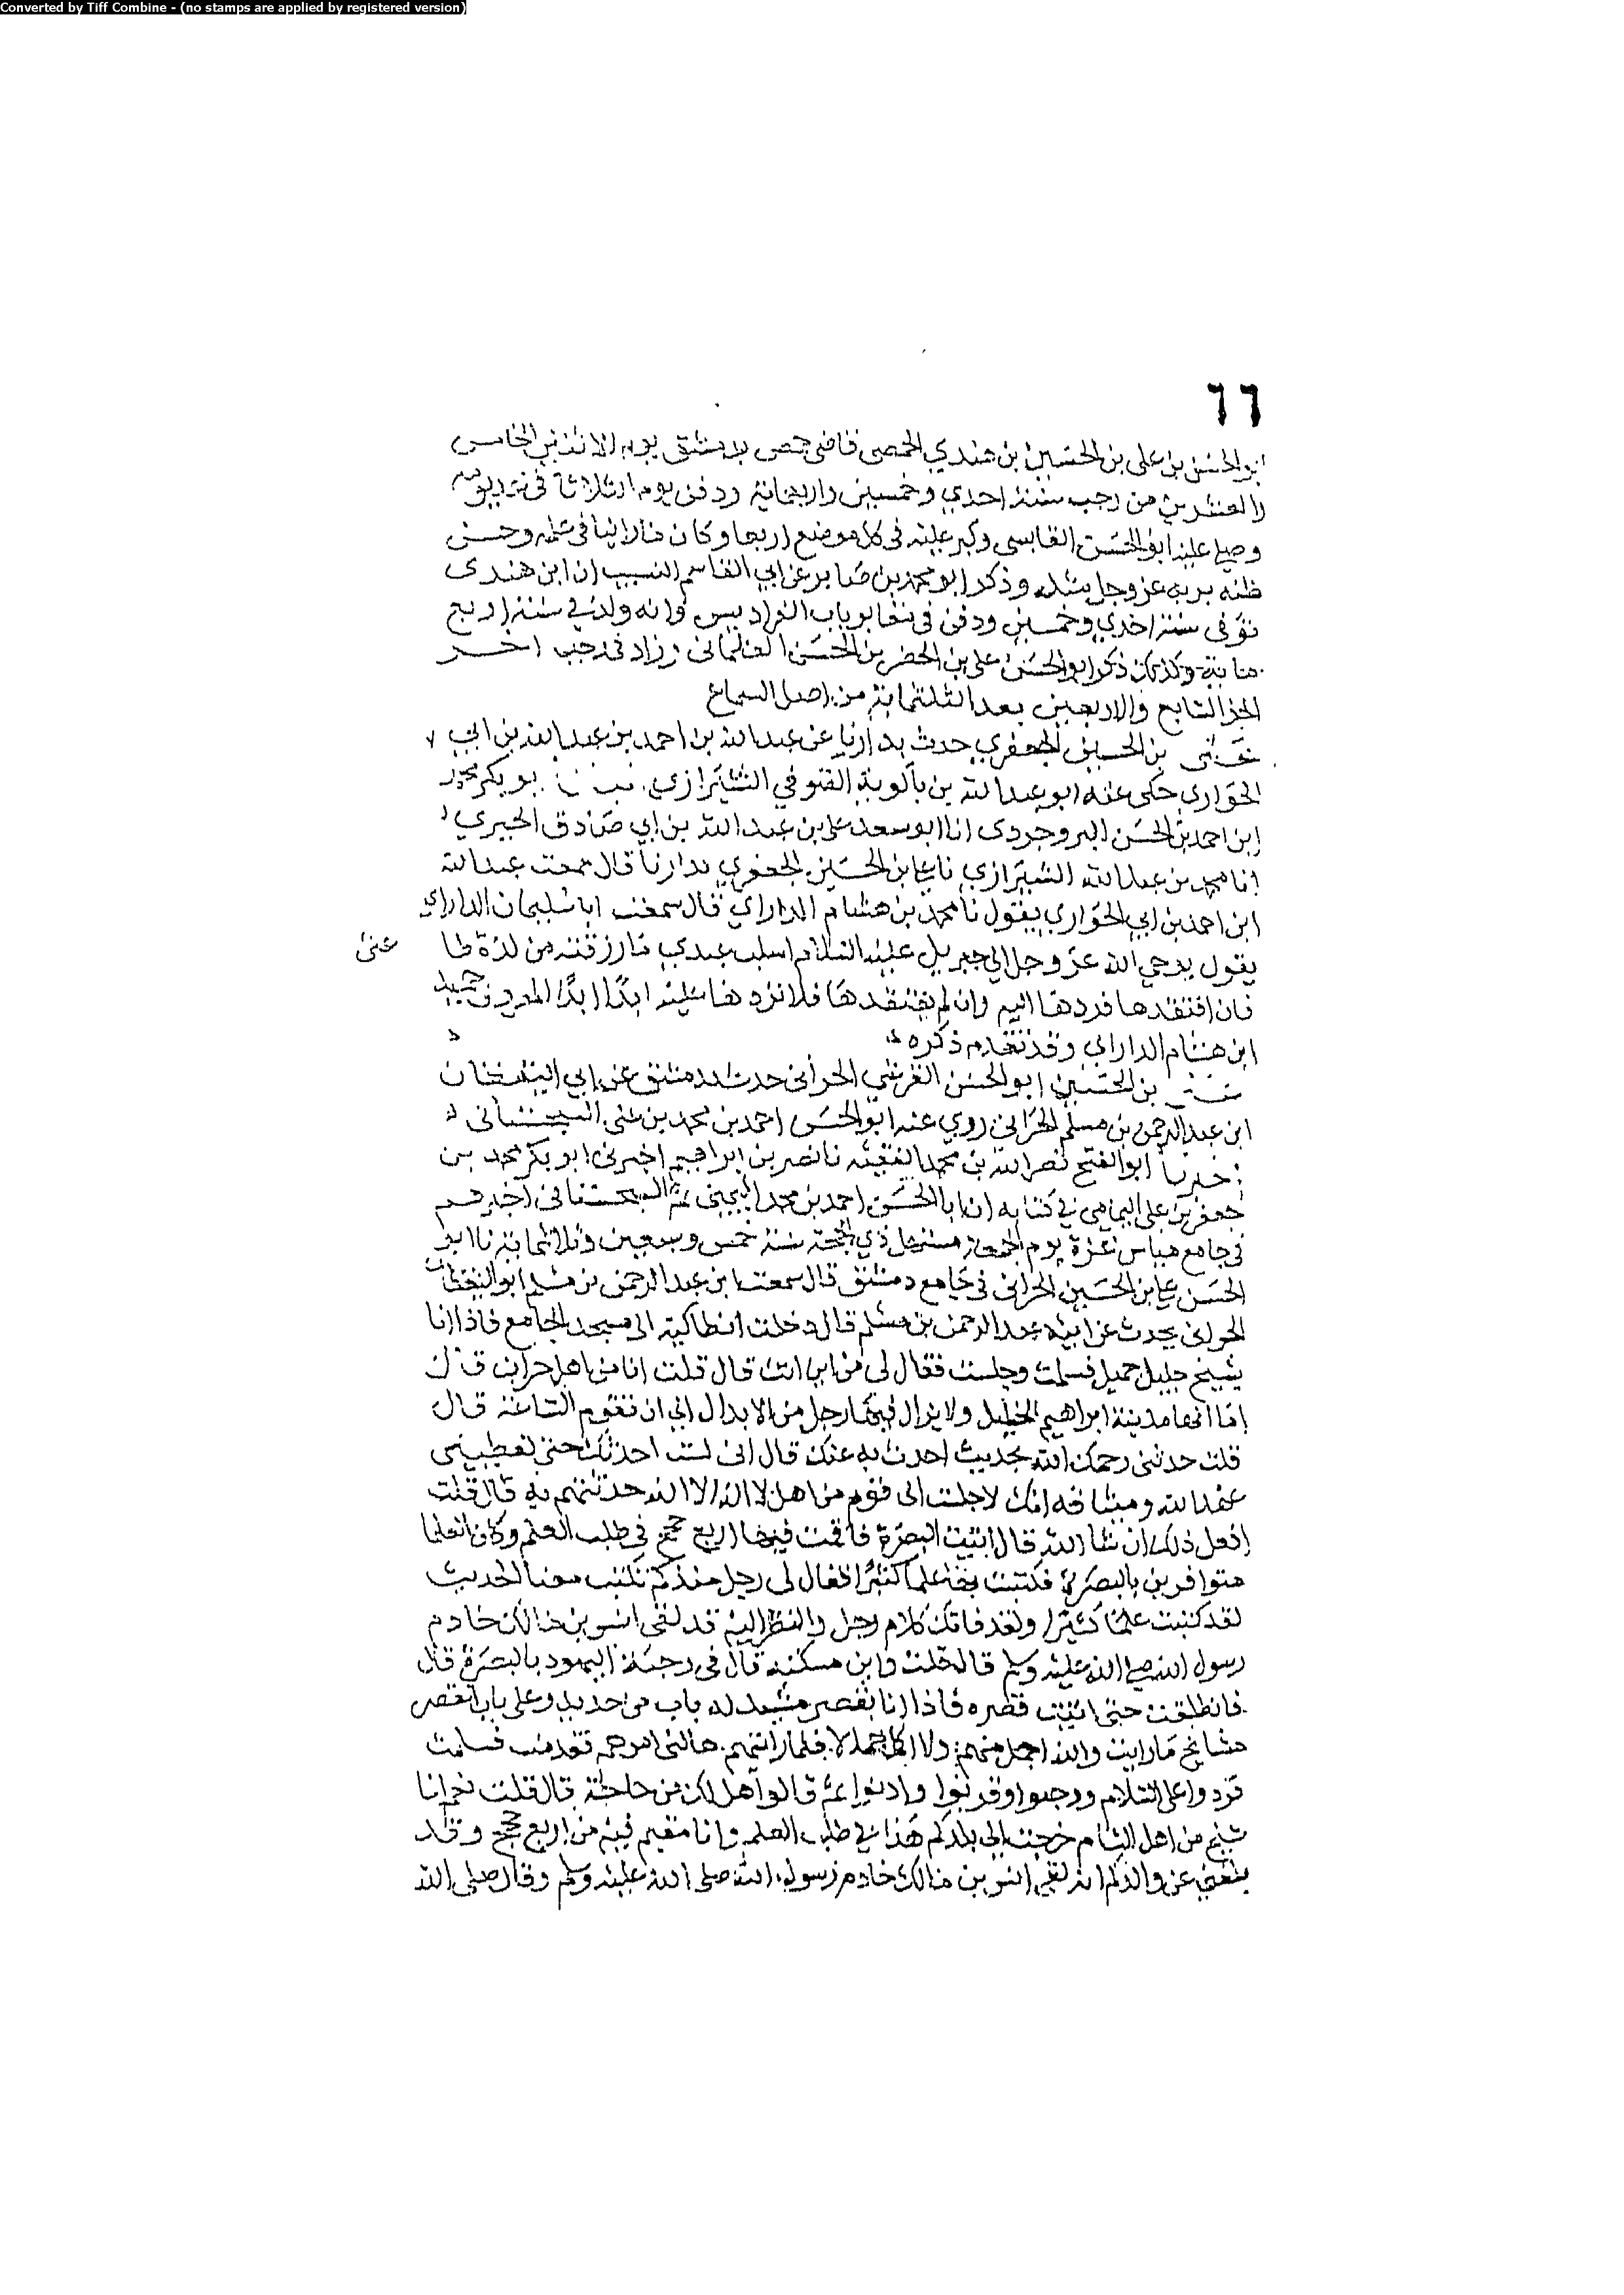 Converted by Tiff Combine - (no stamps are applied by registered version)
٦٦
ابو الحسن بن على بن الحسين بن هندي الحمصى قاضى حمص بدمشق يوم الاثنين الخامس
والعشرين من رجب سنة احدي وخمسين واربعمائة ودفن يوم الثلاثا فى
وصلى عليه ابو الحسن القابسى وكبر عليه فى كل موضع اربعا وكان فى علمه وحسن
ظنه بربه عز وجل مثله وذكر ابو محمد بن صابر عن ابي القاسم النسيب ان ابن هندى
توفى سنة احدي وخمسين ودفن فى مقابر باب الفراديس وانه ولد في سنة اربع
مائة وكذلك ذكر ابو الحسن على بن الخضر بن الحسن العثمانى وزاد فى رجب اخر
الجز السابع والاربعين بعد الثلثمائة من اصل السماع
بن الحسين الجعفري حدث بداريا عن عبد الله بن احمد بن عبد الله بن ابي
الحواري حكى عنه ابو عبد الله بن باكوية الصوفي الشيرازي ابو بكر محمد
ابن احمد بن الحسن البروجردى انا ابو سعد على بن عبد الله بن ابي صادق الحيري
انا محمد بن عبد الله الشيرازي نا على بن الحسين الجعفري بداريا قال سمعت عبد الله
ابن احمد بن ابي الحواري يقول نا محمد بن هشام الداراي قال سمعت ابا سليمان الداراي
يقول يوحي الله عز وجل الي جبريل عليه السلام اسلب عبدي ما رزقته من لذة طا عتى
فان افتقدها فردها اليه وان لم يفتقدها فلا تردها عليه ابدًا ابدًا المعروف حميد
ابن هشام الداراي وقد تقدم ذكره
بن الحسين ابو الحسن القرشي الحرانى حدث بدمشق عن ابي اليقضان
ابن عبد الرحمن بن مسلم الحراني روي عنه ابو الحسن احمد بن محمد بن
اخبرنا ابو الفتح نصر الله بن محمد الفقيه نا نصر بن ابراهيم اخبرنى ابو بكر محمد بن
جعفر بن على اليمامى في كتابه ان ابا الحسن احمد بن محمد اخبرهم
فى جامع ميماس غزة يوم الجمعة مستهل ذي الحجة سنة خمس وسبعين وثلاثمائة نا ابو
الحسن على بن الحسين الحرانى فى جامع دمشق قال سمعت ابن عبد الرحمن بن مسلم ابو اليقظان
الحرانى يحدث عن ابيه عبد الرحمن بن مسلم قال دخلت انطاكية الى مسجد الجامع فاذا انا
بشيخ جليل جميل فسلمت وجلست فقال لى من اين انت قال قلت انا من اهل حران قال
اما انها مدينة ابراهيم الخليل ولا يزال فيها رجل من الابدال الي ان تقوم الساعة قال
قلت حدثنى رحمك الله بحديث احدث به عنك قال انى لست احدثك حتى تعطينى
عهد الله وميثاقه انك لا جلست الى قوم من اهل لا اله الا الله حدثتهم به قال قلت
افعل ذلك ان شا الله قال اتيت البصرة فاقمت فيها اربع حجج في طلب العلم وكان العلما
متوافرين بالبصرة فكتبت بها علما كثيرًا فقال لى رجل منذ كم تكتب معنا الحديث
لقد كتبت علما كثيرا ولقد فاتك كلام رجل والنظر اليه قد لقى انس بن مالك خادم
رسول الله صلى الله عليه وسلم قال قلت واين مسكنه قال فى رحبة اليهود بالبصرة قال
فانطلقت حتى اتيت قصره فاذا انا بقصر مشيد له باب من حديد وعلى باب القصر
مشايخ ما رايت والله اجمل منهم ولا اكمل جمالا فلما رايتهم هالنى امرهم تقدمت فسلمت
فردوا على السلام ورحبوا وقربوا وادنوا ثم قالوا هل لك من حاجة قال قلت نعم انا
شيخ من اهل الشام خرجت الي بلدكم هذا في طلب العلم وانا مقيم فيه من اربع حجج وقد
بلغني عن والدكم انه لقى انس بن مالك خادم رسول الله صلى الله عليه وسلم وقال صلى الله